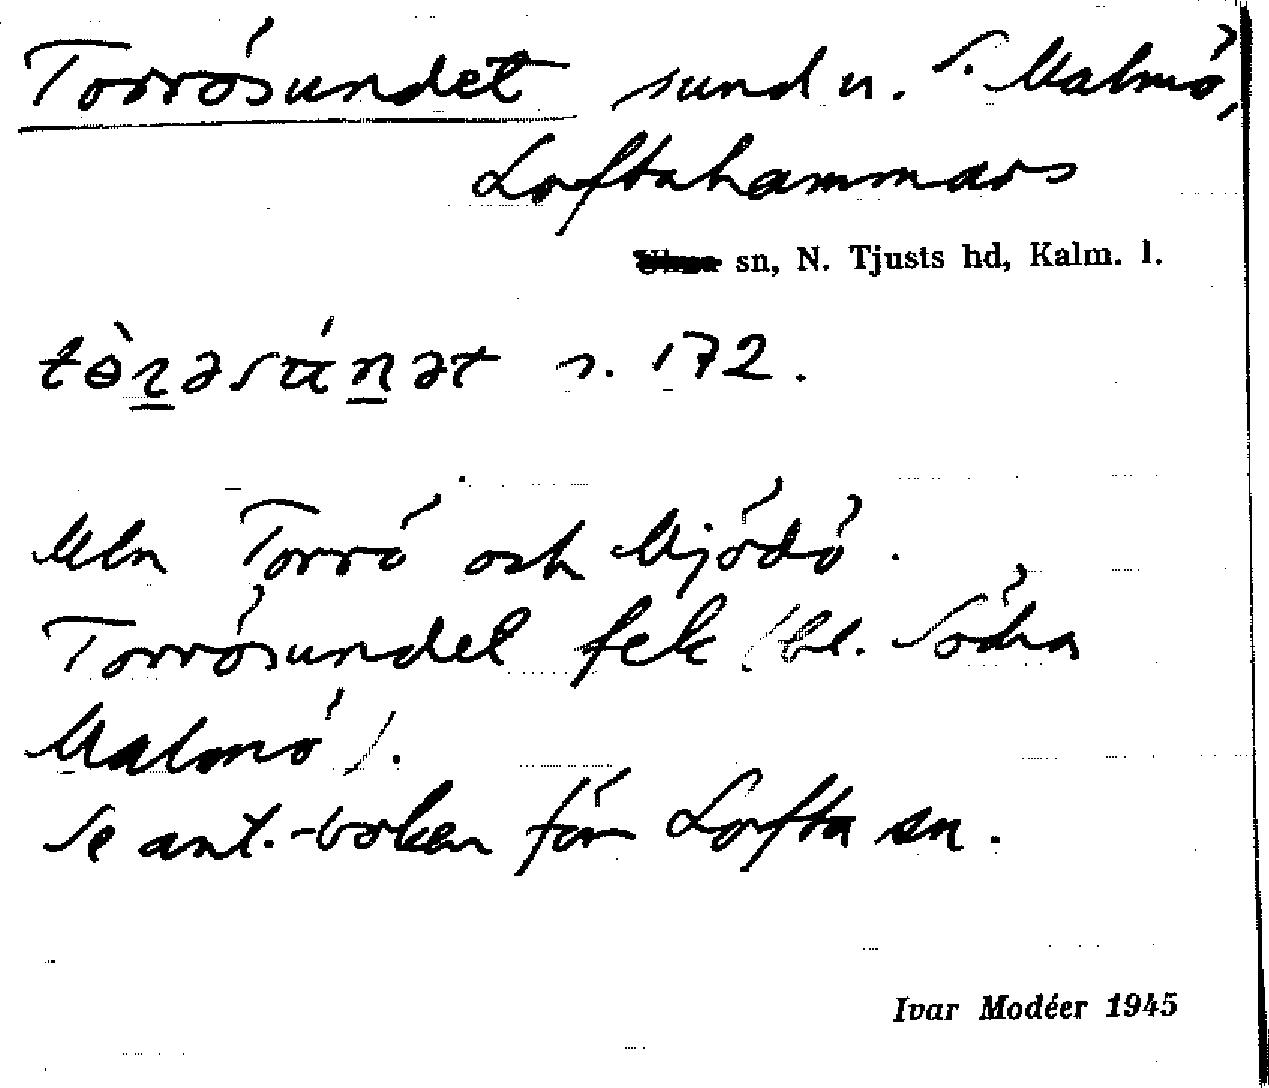 Torrösundet sund u. S. Malmö,
Loftahammars
sn, N. Tjusts hd, Kalm. l.
s. 172.
Mln Torrö och Mjödö.
Torrösundet fek (bl. Södra
Malmö).
Se ant.-boken för Lofta sn.
Ivar Modéer 1945